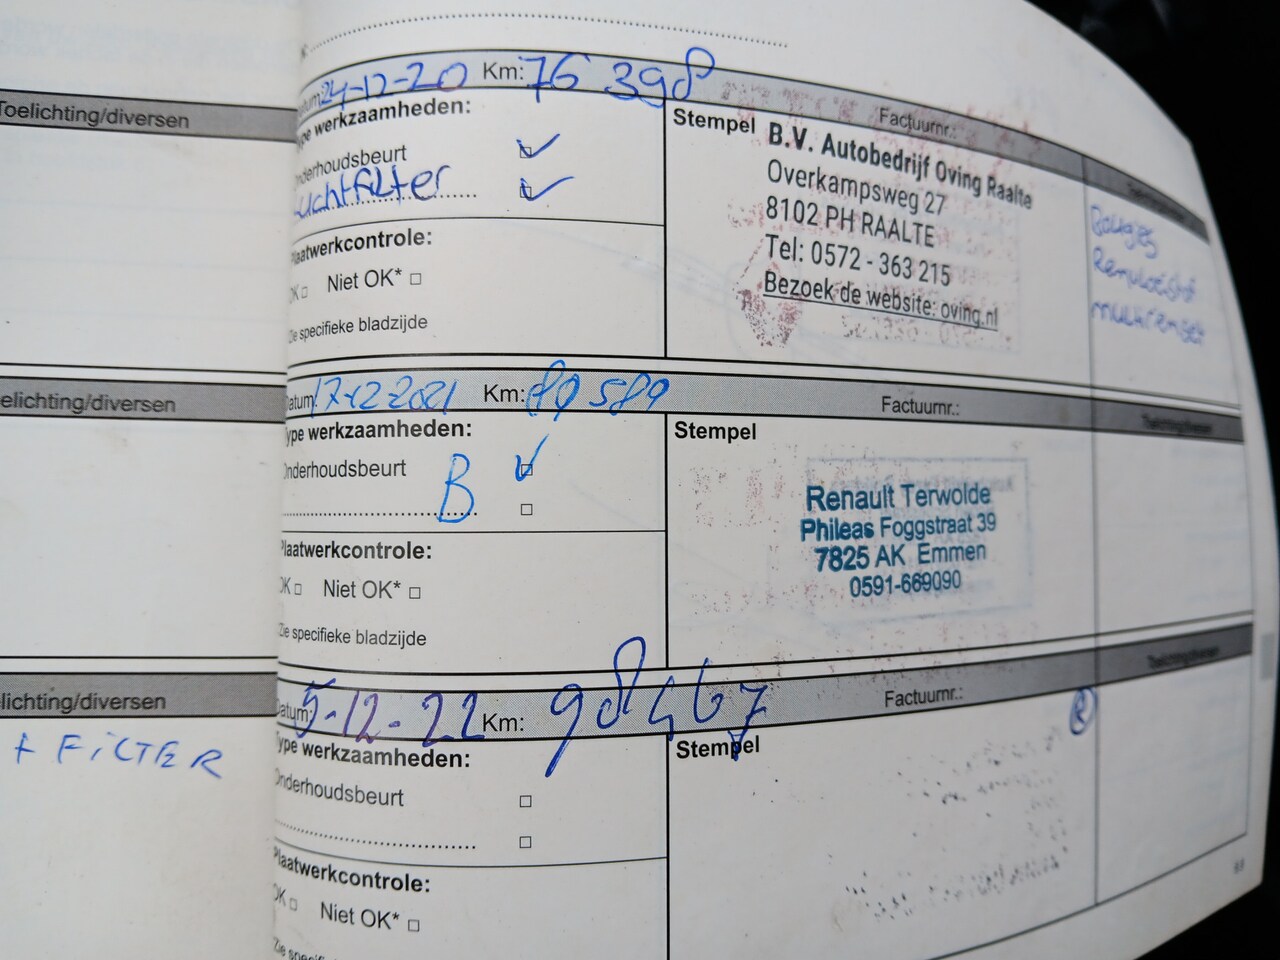 Toelichting/diversen
24-12-20 Km: 76 398
Factuurnr.:
Type werkzaamheden:
Onderhoudsbeurt
Luchtfilter
Plaatwerkcontrole:
OK □ Niet OK* □
Zie specifieke bladzijde
Stempel
B.V. Autobedrijf Oving Raalte
Overkampsweg 27
8102 PH RAALTE
Tel: 0572 - 363 215
Bezoek de website: oving.nl
Bougies
Remvloeistof
elichting/diversen
Datum: 17-12-2021 Km: 89 589
Factuurnr.:
Type werkzaamheden:
Onderhoudsbeurt
B
Plaatwerkcontrole:
OK □ Niet OK* □
Zie specifieke bladzijde
Stempel
Renault Terwolde
Phileas Foggstraat 39
7825 AK Emmen
0591-669090
lichting/diversen
+ FILTER
Datum: 5-12-22 Km: 98467
Factuurnr.:
Type werkzaamheden:
Onderhoudsbeurt
Plaatwerkcontrole:
OK □ Niet OK* □
Stempel
R